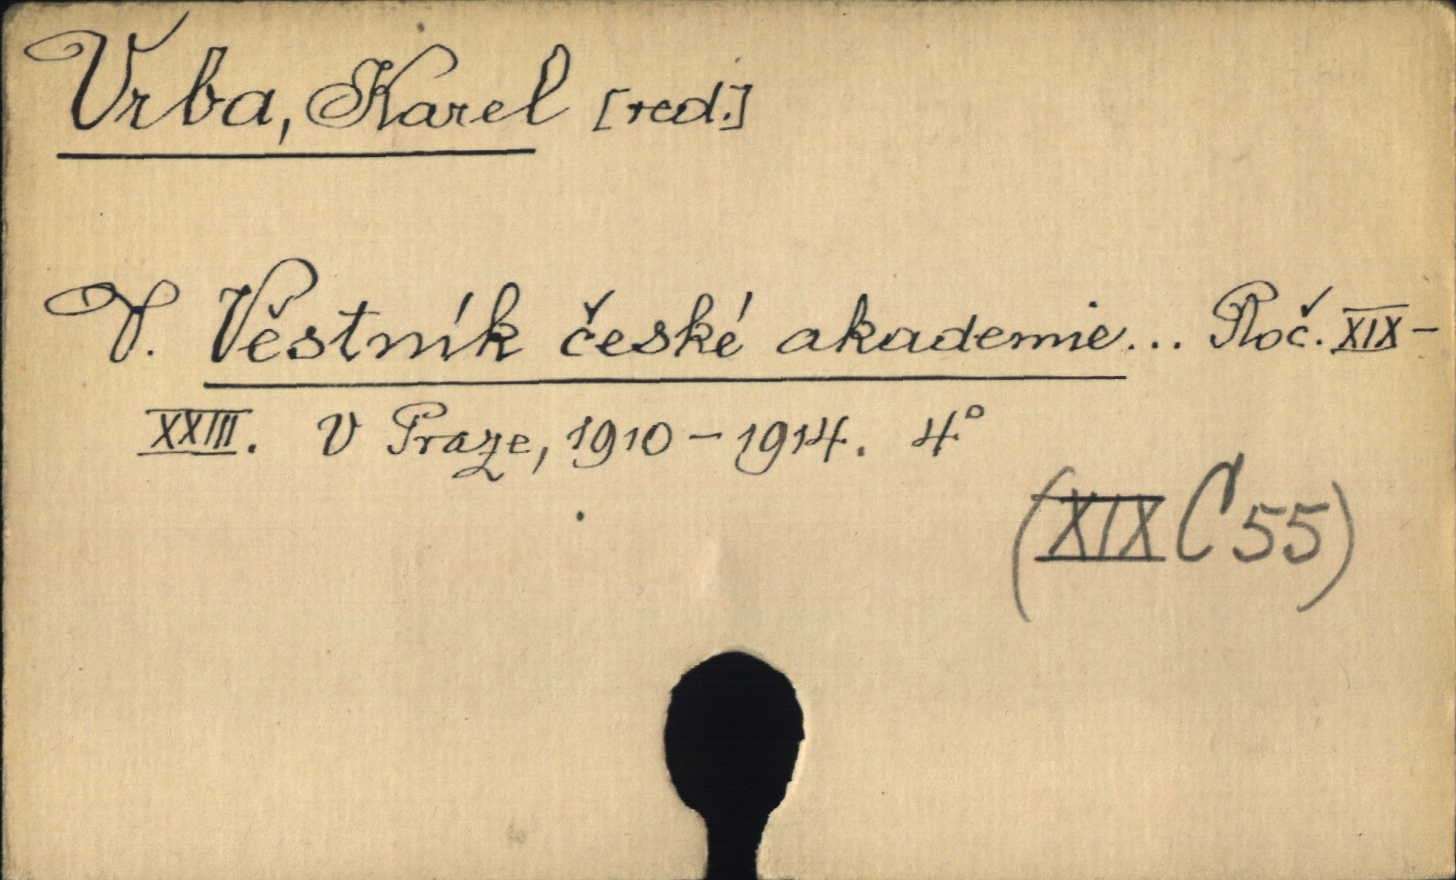 Vrba, Karel [red.]
V. Věstník české akademie... Roč. XIX-
XXIII. V Praze, 1910-1914. 4°
(XIX C 55)